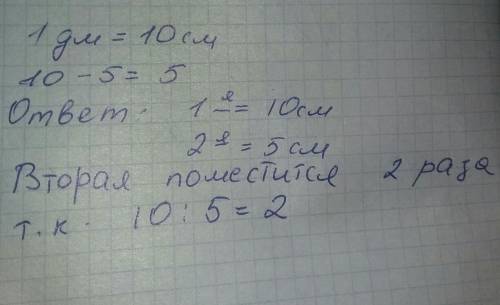 1 дм = 10см
10 - 5 = 5
Ответ. 1 я = 10см
2 я = 5 см
Вторая поместится 2 раза
т.к. 10 : 5 = 2